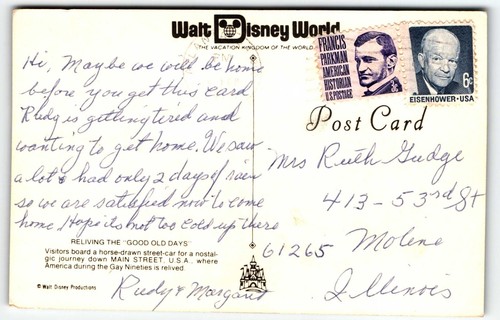 Walt Disney World
THE VACATION KINGDOM OF THE WORLD
FRANCIS
PARKMAN
AMERICAN
HISTORIAN
U.S. POSTAGE
3c
6c
EISENHOWER·USA
Post Card
Hi, Maybe we will be home
before you get this card
Rudy is getting tired and
wanting to get home. We saw
a lot & had only 2 days of rain
so we are satisfied now to come
home. Hope its not too cold up there
Rudy & Margaret
Mrs Ruth Gudge
413-53rd St
Moline
61265
Illinois
RELIVING THE "GOOD OLD DAYS"
Visitors board a horse-drawn street-car for a nostal-
gic journey down MAIN STREET, U.S.A., where
America during the Gay Nineties is relived.
© Walt Disney Productions